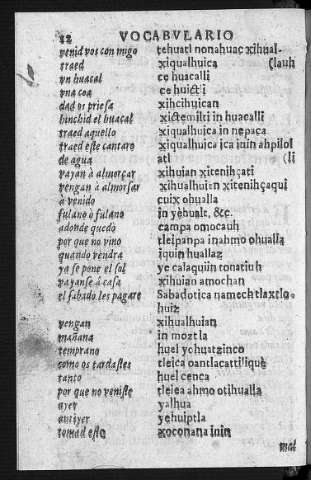 22 VOCABVLARIO
venid vos con migo tehuatl nonahuac xihual-
traed xiqualhuica (lauh
vn huacal ce huacalli
vna coa ce huicti
dad os priesa xihcihuican
hinchid el huacal xictemiti in huacalli
traed aquello xiqualhuica in nepaca
traed este cantaro xiqualhuica ica inin ahpilol
de agua atl (li
vayan à almorçar xihuian xitenihçati
vengan à almorsar xihualhuian xitenihçaqui
à venido cuix ohualla
fulano ò fulano in yèhuatl, &c.
adonde quedò campa omocauh
por que no vino tleipanpa inahmo ohualla
quando vèndra iquin huallaz
ya se pone el sol ye calaquiin tonatiuh
vayanse à casa xihuian amochan
el sabado les pagare Sabadotica namechtlaxtlo-
huiz
vengan xihualhuian
mañana in moztla
temprano huel yohuatzinco
como os tardastes tleica oantlacattilique
tanto huel cenca
por que no veniste tleica ahmo otihualla
ayer yalhua
antiyer yehuiptla
tomad esto xoconana inin
mal